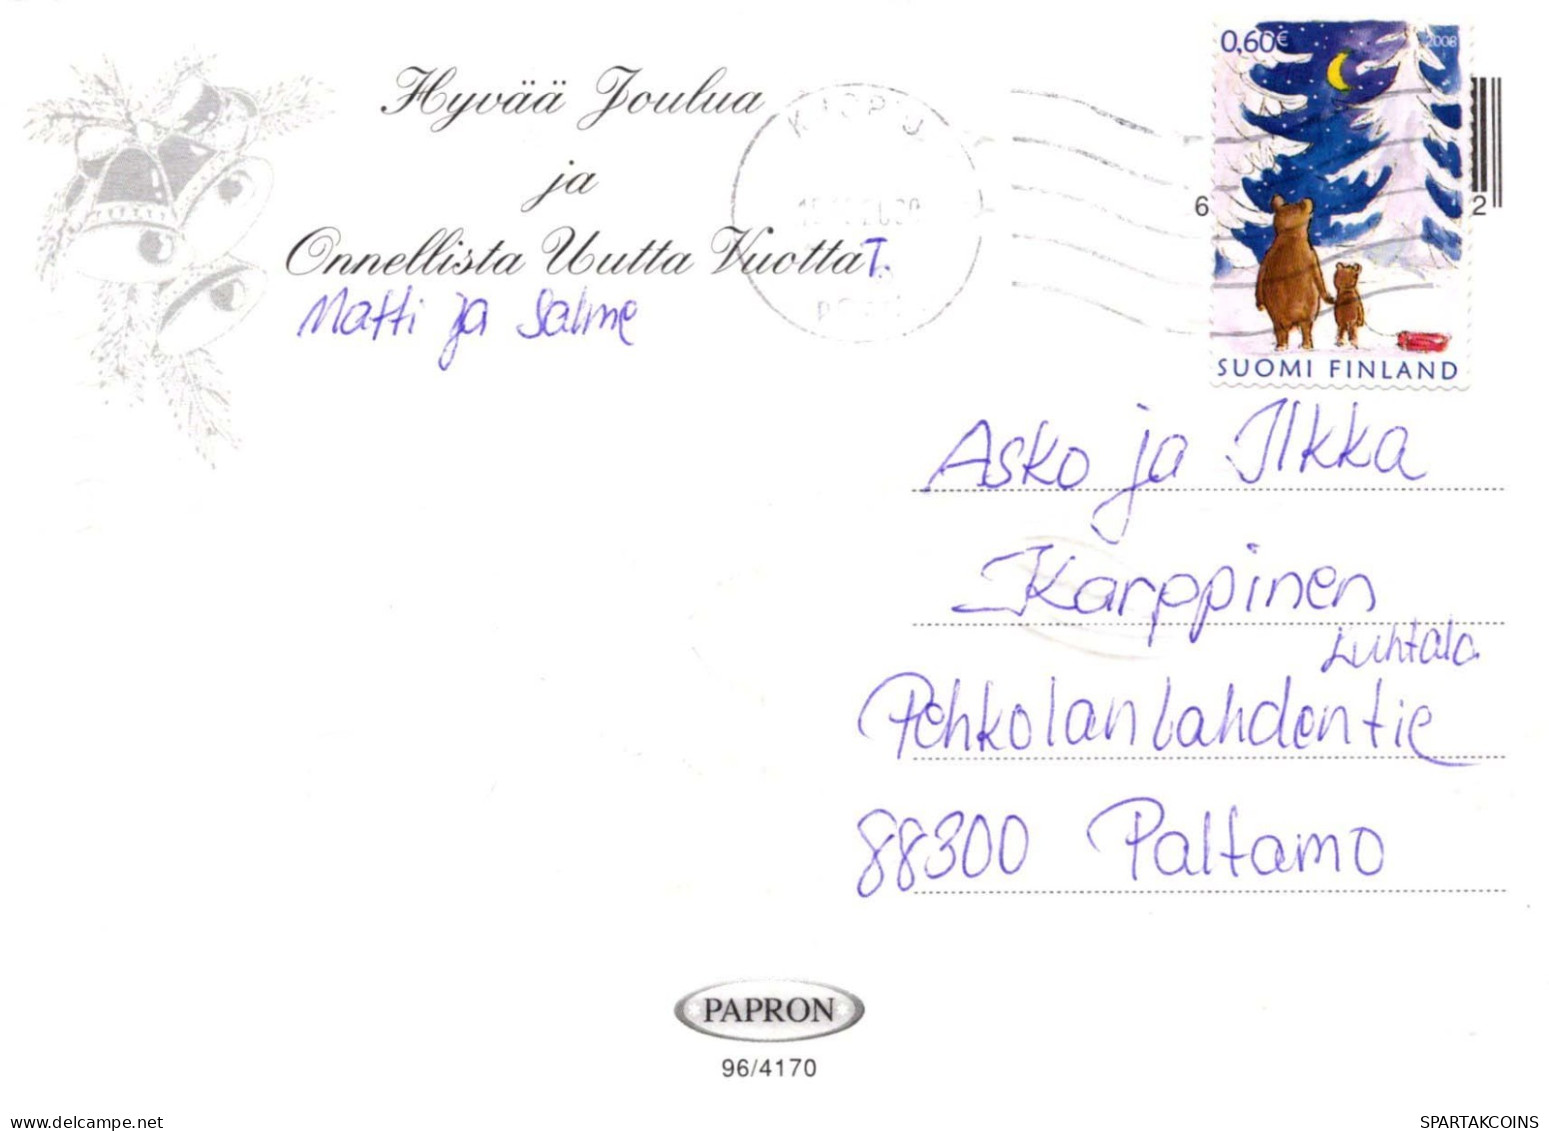 Hyvää Joulua
ja
Onnellista Uutta Vuotta T.
Matti ja Salme
0,60€ 2008
6 2
SUOMI FINLAND
Asko ja Ilkka
Karppinen
Luhtala
Pehkolanlahdentie
88300 Paltamo
PAPRON
96/4170
www.delcampe.net
SPARTAKCOINS